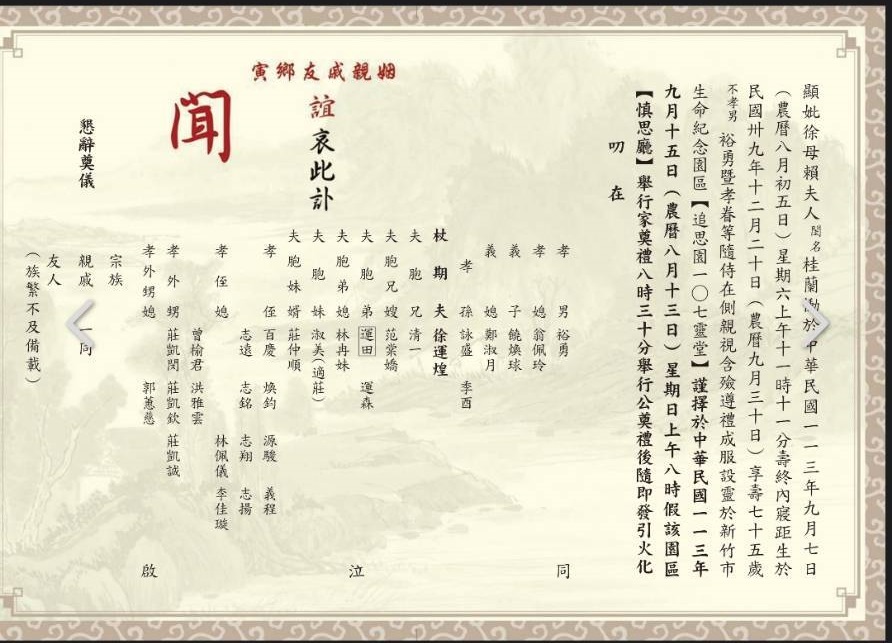 顯妣徐母賴夫人閨名桂蘭慟於中華民國一一三年九月七日
（農曆八月初五日）星期六上午十一時十一分壽終內寢距生於
民國卅九年十二月二十日（農曆九月三十日）享壽七十五歲
不孝男 裕勇暨孝眷等隨侍在側親視含殮遵禮成服設靈於新竹市
生命紀念園區【追思園一〇七靈堂】謹擇於中華民國一一三年
九月十五日（農曆八月十三日）星期日上午八時假該園區
【慎思廳】舉行家奠禮八時三十分舉行公奠禮後隨即發引火化
叨在
姻親戚友鄉寅
誼 哀此訃
聞
孝男 裕勇
孝媳 翁佩玲
義子 饒煥球
義媳 鄭淑月
孝孫 詠盛 季酉
杖期夫 徐運煌
夫胞兄 清一
夫胞兄嫂 范棠嬌
夫胞弟 運田 運森
夫胞弟媳 林冉妹
夫胞妹 淑美（適莊）
夫胞妹婿 莊仲順
孝侄 百慶 煥鈞 源駿 義程
志遠 志銘 志翔 志揚
孝侄媳 林佩儀 李佳璇
曾榆君 洪雅雲
孝外甥 莊凱閔 莊凱欽 莊凱誠
孝外甥媳 郭蕙慈
宗族
親戚 一同
友人
（族繁不及備載）
同
泣
啟
懇辭奠儀